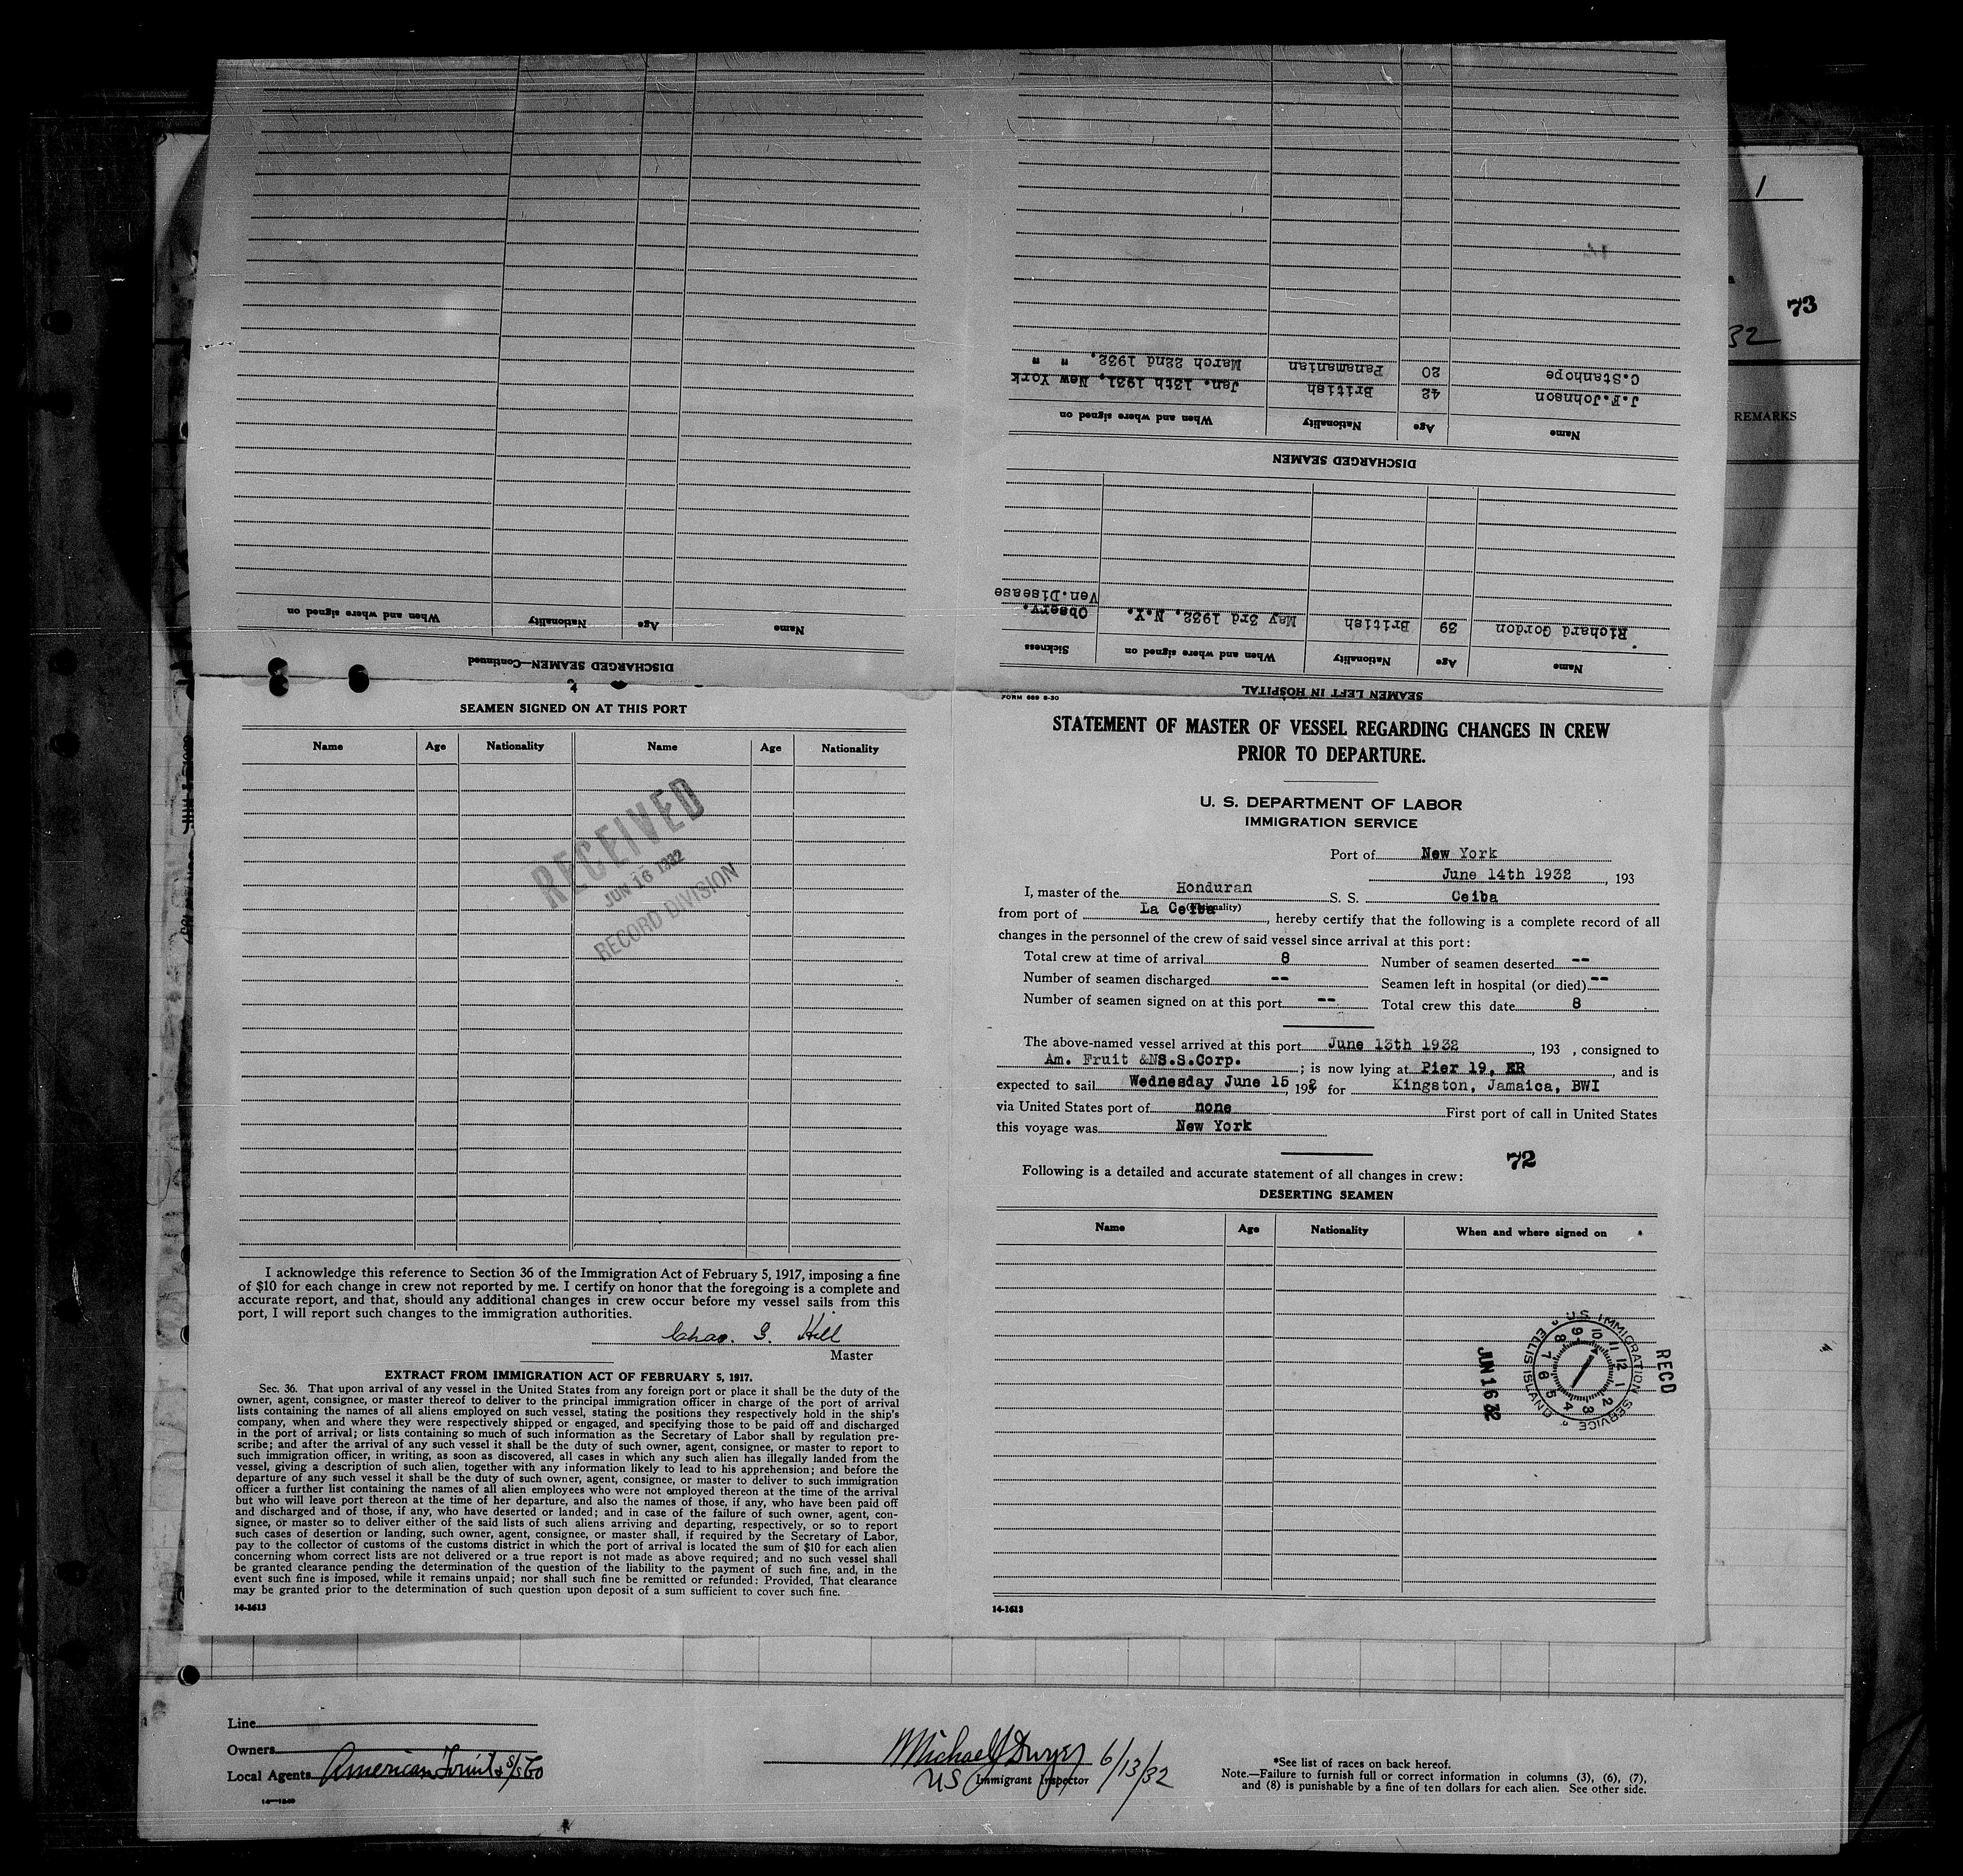 1
73
32
REMARKS
DISCHARGED SEAMEN—Continued
Name Age Nationality When and where signed on
SEAMEN LEFT IN HOSPITAL
Name Age Nationality When and where signed on Sickness
Richard Gordon 39 British May 3rd 1932. N.Y. Observ.
Ven.Disease
DISCHARGED SEAMEN
Name Age Nationality When and where signed on
J.F.Johnson 42 British Jan. 13th 1931. New York
C.Stanhope 20 Panamanian March 22nd 1932. " "
SEAMEN SIGNED ON AT THIS PORT
Name Age Nationality Name Age Nationality
RECEIVED
JUN 16 1932
RECORD DIVISION
I acknowledge this reference to Section 36 of the Immigration Act of February 5, 1917, imposing a fine
of $10 for each change in crew not reported by me. I certify on honor that the foregoing is a complete and
accurate report, and that, should any additional changes in crew occur before my vessel sails from this
port, I will report such changes to the immigration authorities.
Chas. G. Hill
Master
EXTRACT FROM IMMIGRATION ACT OF FEBRUARY 5, 1917.
Sec. 36. That upon arrival of any vessel in the United States from any foreign port or place it shall be the duty of the
owner, agent, consignee, or master thereof to deliver to the principal immigration officer in charge of the port of arrival
lists containing the names of all aliens employed on such vessel, stating the positions they respectively hold in the ship's
company, when and where they were respectively shipped or engaged, and specifying those to be paid off and discharged
in the port of arrival; or lists containing so much of such information as the Secretary of Labor shall by regulation pre-
scribe; and after the arrival of any such vessel it shall be the duty of such owner, agent, consignee, or master to report to
such immigration officer, in writing, as soon as discovered, all cases in which any such alien has illegally landed from the
vessel, giving a description of such alien, together with any information likely to lead to his apprehension; and before the
departure of any such vessel it shall be the duty of such owner, agent, consignee, or master to deliver to such immigration
officer a further list containing the names of all alien employees who were not employed thereon at the time of the arrival
but who will leave port thereon at the time of her departure, and also the names of those, if any, who have been paid off
and discharged and of those, if any, who have deserted or landed; and in case of the failure of such owner, agent, con-
signee, or master so to deliver either of the said lists of such aliens arriving and departing, respectively, or so to report
such cases of desertion or landing, such owner, agent, consignee, or master shall, if required by the Secretary of Labor,
pay to the collector of customs of the customs district in which the port of arrival is located the sum of $10 for each alien
concerning whom correct lists are not delivered or a true report is not made as above required; and no such vessel shall
be granted clearance pending the determination of the question of the liability to the payment of such fine, and, in the
event such fine is imposed, while it remains unpaid; nor shall such fine be remitted or refunded: Provided, That clearance
may be granted prior to the determination of such question upon deposit of a sum sufficient to cover such fine.
14-1613
FORM 689 8-30
STATEMENT OF MASTER OF VESSEL REGARDING CHANGES IN CREW
PRIOR TO DEPARTURE.
U. S. DEPARTMENT OF LABOR
IMMIGRATION SERVICE
Port of New York
June 14th 1932, 193
I, master of the Honduran S. S. Ceiba
(Nationality)
from port of La Ceiba, hereby certify that the following is a complete record of all
changes in the personnel of the crew of said vessel since arrival at this port:
Total crew at time of arrival 8 Number of seamen deserted --
Number of seamen discharged -- Seamen left in hospital (or died) --
Number of seamen signed on at this port -- Total crew this date 8
The above-named vessel arrived at this port June 13th 1932, 193 , consigned to
Am. Fruit &NS.S.Corp. ; is now lying at Pier 19, ER, and is
expected to sail Wednesday June 15, 1932 for Kingston, Jamaica, BWI
via United States port of none First port of call in United States
this voyage was New York
72
Following is a detailed and accurate statement of all changes in crew:
DESERTING SEAMEN
Name Age Nationality When and where signed on
RECD
U.S. IMMIGRATION SERVICE
ELLIS ISLAND
1 2 3 4 5 6 7 8 9 10 11 12
JUN 16 32
14-1613
Line
Owners
Local Agents American Fruit & S/S Co
14—1240
Michael J Dwyer 6/13/32
US Immigrant Inspector
*See list of races on back hereof.
Note.—Failure to furnish full or correct information in columns (3), (6), (7),
and (8) is punishable by a fine of ten dollars for each alien. See other side.